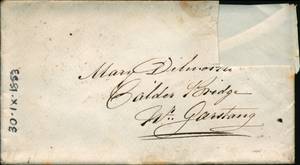 Mary Dilworth
Calder Bridge
Nr. Garstang
30-IX-1853